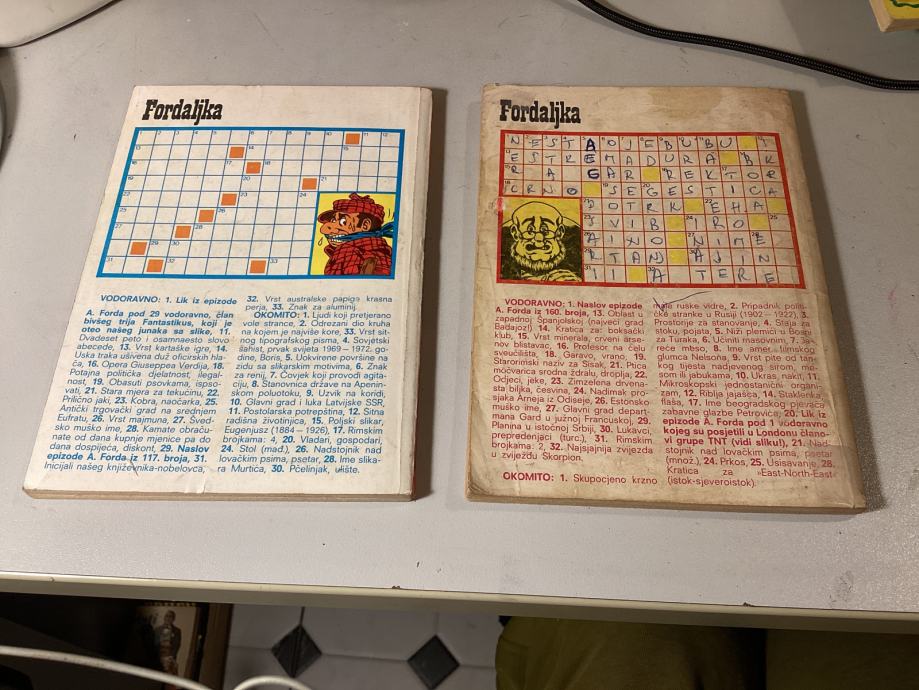 Fordaljka
VODORAVNO: 1. Lik iz epizode
A. Forda pod 29 vodoravno, član
bivšeg trija Fantastikus, koji je
oteo našeg junaka sa slike, 11.
Dvadeset peto i osamnaesto slovo
abecede, 13. Vrst kartaške igre, 14.
Uska traka ušivena duž oficirskih hla-
ča, 16. Opera Giuseppea Verdija, 18.
Potajna politička djelatnost, ilegal-
nost, 19. Obasuti psovkama, ispso-
vati, 21. Stara mjera za tekućinu, 22.
Prilično jaki, 23. Kobra, naočarka, 25.
Antički trgovački grad na srednjem
Eufratu, 26. Vrst majmuna, 27. Šved-
sko muško ime, 28. Kamate obraču-
nate od dana kupnje mjenice pa do
dana dospijeća, diskont, 29. Naslov
epizode A. Forda iz 117. broja, 31.
Inicijali našeg književnika-nobelovca,
32. Vrst australske papige krasna
perja, 33. Znak za aluminij.
OKOMITO: 1. Ljudi koji pretjerano
vole strance, 2. Odrezani dio kruha
na kojem je najviše kore, 33. Vrst sit-
nog tipografskog pisma, 4. Sovjetski
šahist, prvak svijeta 1969–1972. go-
dine, Boris, 5. Uokvirene površine na
zidu sa slikarskim motivima, 6. Znak
za renij, 7. Čovjek koji provodi agita-
ciju, 8. Stanovnica države na Apenin-
skom poluotoku, 9. Uzvik na koridi,
10. Glavni grad i luka Latvijske SSR,
11. Postolarska potrepština, 12. Sitna
radišna životinjica, 15. Poljski slikar,
Eugenjusz (1884–1926), 17. Rimskim
brojkama: 4, 20. Vladari, gospodari,
24. Stol (mađ.), 26. Nadstojnik nad
lovačkim psima, psetar, 28. Ime slika-
ra Murtića, 30. Pčelinjak, ulište.
Fordaljka
NESTAOJEBUBU
ESTREMADURA BK
R A GAR REKTOR
CRNO SEGESTICA
DOTRK EHA
SVIB RO
AINO NIME
RTANJ AJIN
II ANTERE
VODORAVNO: 1. Naslov epizode
A. Forda iz 160. broja, 13. Oblast u
zapadnoj Španjolskoj (najveći grad
Badajoz!) 14. Kratica za: boksački
klub, 15. Vrst minerala, crveni arse-
nov blistavac, 16. Profesor na čelu
sveučilišta, 18. Garavo, vrano, 19.
Starorimski naziv za Sisak, 21. Ptica
močvarica srodna ždralu, droplja, 22.
Odjeci, jeke, 23. Zimzelena drvena-
sta biljka, česvina, 24. Nadimak pro-
sjaka Arneja iz Odiseje, 26. Estonsko
muško ime, 27. Glavni grad depart-
mana Gard u južnoj Francuskoj, 29.
Planina u istočnoj Srbiji, 30. Lukavci,
prepredenjaci (turc.), 31. Rimskim
brojkama: 2, 32. Najsjajnija zvijezda
u zviježđu Skorpion.
OKOMITO: 1. Skupocjeno krzno
male ruske vidre, 2. Pripadnik politi-
čke stranke u Rusiji (1902–1922), 3.
Prostorije za stanovanje, 4. Staja za
stoku, pojata, 5. Niži plemići u Bosni
za Turaka, 6. Učiniti masovnim, 7. Ja-
reće meso, 8. Ime amer. filmskog
glumca Nelsona, 9. Vrst pite od tan-
kog tijesta nadjevenog sirom, me-
som ili jabukama, 10. Ukras, nakit, 11.
Mikroskopski jednostanični organi-
zam, 12. Riblja jajašca, 14. Staklenka,
flaša, 17. Ime beogradskog pjevača
zabavne glazbe Petrovića, 20. Lik iz
epizode A. Forda pod 1 vodoravno
kojeg su posjetili u Londonu člano-
vi grupe TNT (vidi sliku!), 21. Nad-
stojnik nad lovačkim psima, psetar
(množ.), 24. Prkos, 25. Usisavanje, 28.
Kratica za »East-North-East«
(istok-sjeveroistok).